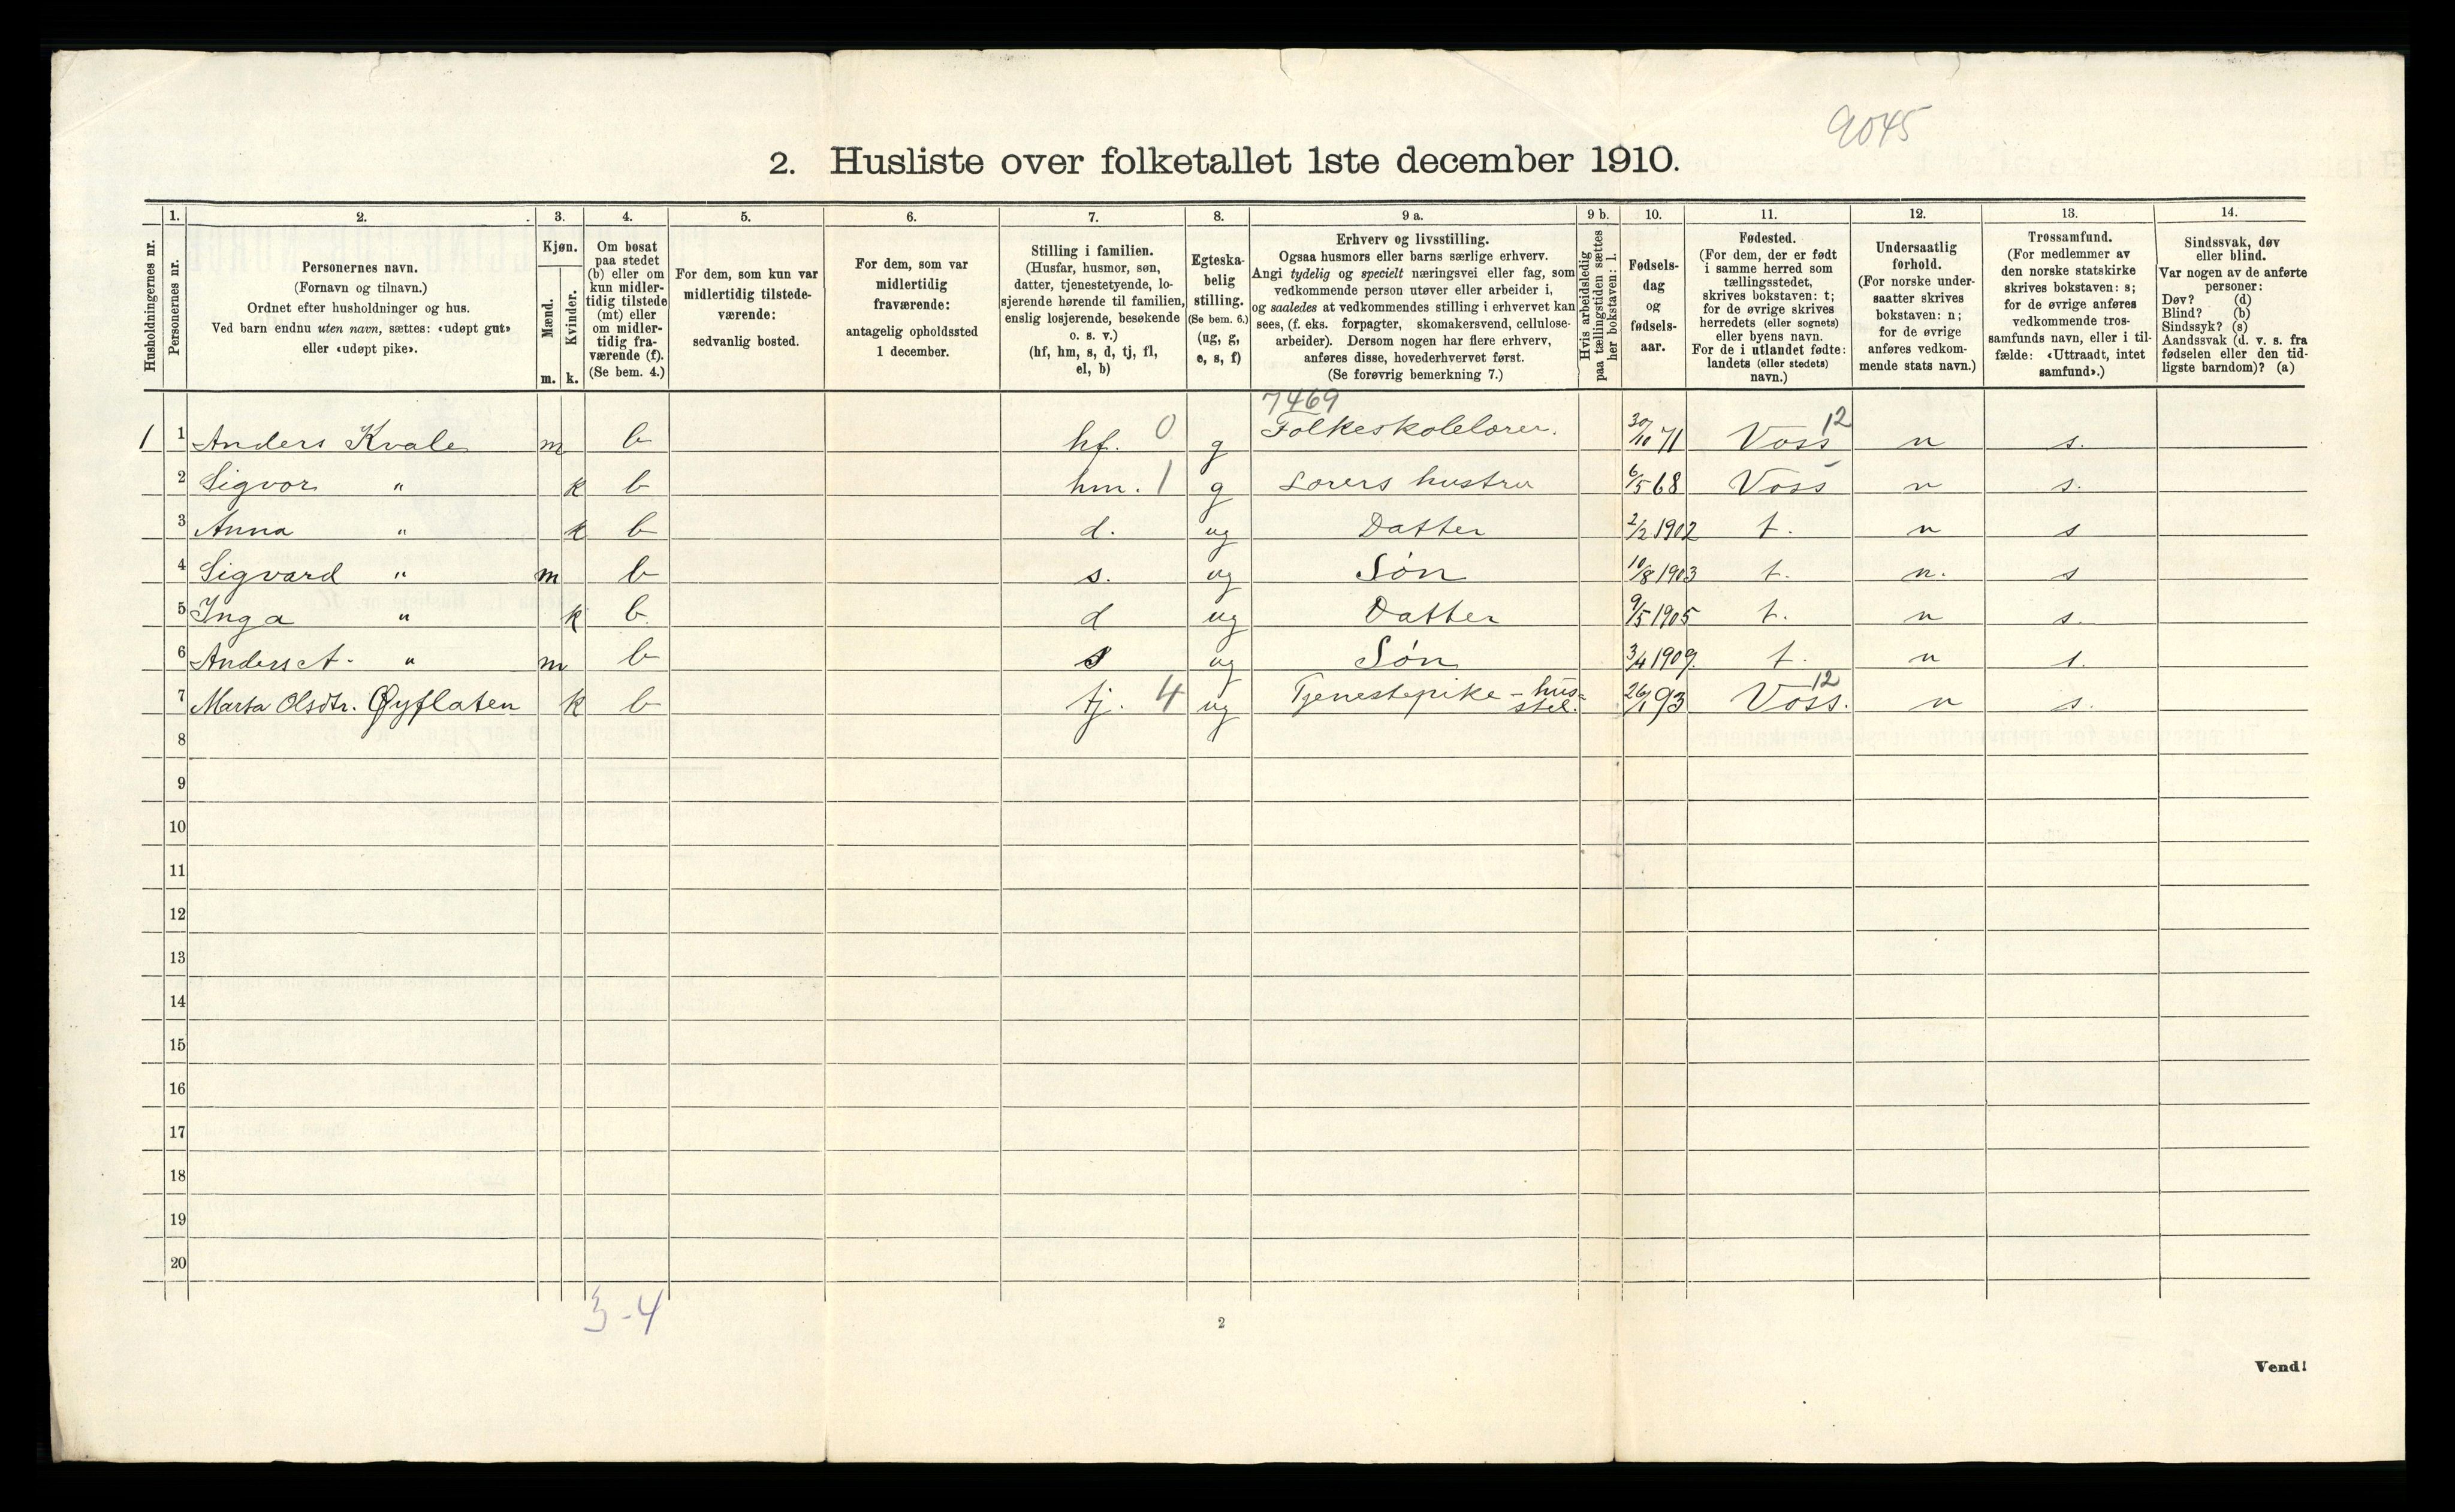 9045
2. Husliste over folketallet 1ste december 1910.
Husholdningernes nr.
1.
Personernes nr.
2.
Personernes navn.
(Fornavn og tilnavn.)
Ordnet efter husholdninger og hus.
Ved barn endnu uten navn, sættes: «udøpt gut»
eller «udøpt pike».
3.
Kjøn.
Mænd.
Kvinder.
m. k.
4.
Om bosat
paa stedet
(b) eller om
kun midler-
tidig tilstede
(mt) eller
om midler-
tidig fra-
værende (f).
(Se bem. 4.)
5.
For dem, som kun var
midlertidig tilstede-
værende:
sedvanlig bosted.
6.
For dem, som var
midlertidig
fraværende:
antagelig opholdssted
1 december.
7.
Stilling i familien.
(Husfar, husmor, søn,
datter, tjenestetyende, lo-
sjerende hørende til familien,
enslig losjerende, besøkende
o. s. v.)
(hf, hm, s, d, tj, fl,
el, b)
8.
Egteska-
belig
stilling.
(Se bem. 6.)
(ug, g,
e, s, f)
9 a.
Erhverv og livsstilling.
Ogsaa husmors eller barns særlige erhverv.
Angi tydelig og specielt næringsvei eller fag, som
vedkommende person utøver eller arbeider i,
og saaledes at vedkommendes stilling i erhvervet kan
sees, (f. eks. forpagter, skomakersvend, cellulose-
arbeider). Dersom nogen har flere erhverv,
anføres disse, hovederhvervet først.
(Se forøvrig bemerkning 7.)
9 b.
Hvis arbeidsledig
paa tællingstiden sættes
her bokstaven: l.
10.
Fødsels-
dag
og
fødsels-
aar.
11.
Fødested.
(For dem, der er født
i samme herred som
tællingsstedet,
skrives bokstaven: t;
for de øvrige skrives
herredets (eller sognets)
eller byens navn.
For de i utlandet fødte:
landets (eller stedets)
navn.)
12.
Undersaatlig
forhold.
(For norske under-
saatter skrives
bokstaven: n;
for de øvrige
anføres vedkom-
mende stats navn.)
13.
Trossamfund.
(For medlemmer av
den norske statskirke
skrives bokstaven: s;
for de øvrige anføres
vedkommende tros-
samfunds navn, eller i til-
fælde: «Uttraadt, intet
samfund».)
14.
Sindssvak, døv
eller blind.
Var nogen av de anførte
personer:
Døv? (d)
Blind? (b)
Sindssyk? (s)
Aandssvak (d. v. s. fra
fødselen eller den tid-
ligste barndom)? (a)
7469 12
1 1 Anders Kvale m b hf. 0 g Folkeskolelærer. 30/10 71 Voss n s.
2 Sigvor " k b hm. 1 g Lærers hustru 6/5 68 Voss n s.
3 Anna " k b d. ug Datter 2/2 1902 t. n s
4 Sigvard " m b s. ug Søn 10/8 1903 t. n. s
5 Inga " k b. d ug Datter 9/5 1905 t. n s.
6 Anders A. " m b s ug Søn 3/4 1909. t. n s.
7 Marta Olsdtr. Øyflaten k b tj. 4 ug Tjenestepike - hus= 26/1 93 Voss. 12 n s.
stel.
8
9
10
11
12
13
14
15
16
17
18
19
20
3-4
2
Vend!